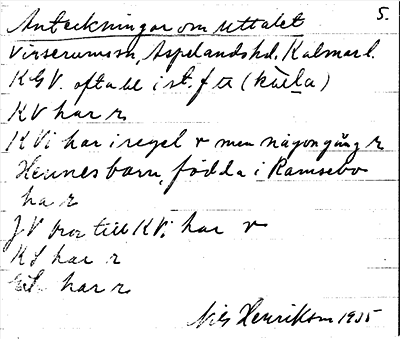 5.
Anteckningar om uttalet
Virserums sn, Aspelands hd. Kalmar l.
K G V. ofta bl i st. f tt (källa)
K V har r
K Vi har i regel v men någon gång r
Hennes barn, födda i Ramsebo
ha r
J V bror till K Vi har v
K S har r
har r
Nils Henrikson 1935